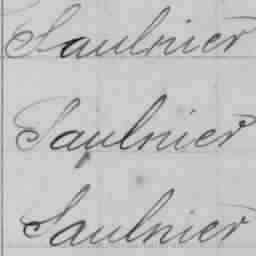 Saulnier
Saulnier
Saulnier